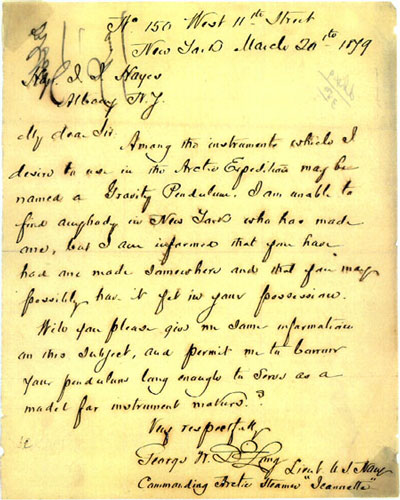 No 150 West 11th Street
New York March 20th 1879
Hon. I. I. Hayes
Albany N.Y.
My dear Sir.
Among the instruments which I
desire to use in the Arctic Expedition may be
named a Gravity Pendulum. I am unable to
find anybody in New York who has made
one, but I am informed that you have
had one made somewhere and that you may
possibly have it yet in your possession.
Will you please give me some information
on this subject, and permit me to borrow
your pendulum long enough to serve as a
model for instrument makers?
Very respectfully
George W. De Long
Lieut. U S Navy
Commanding Arctic Steamer "Jeannette"